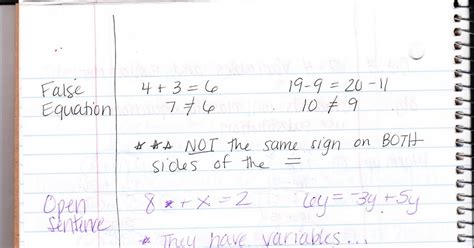 False 4 + 3 = 6 19-9 = 20-11
Equation 7 ≠ 6 10 ≠ 9
*** NOT the same sign on BOTH
sides of the =
Open 8 + x = 2 6y = -3y + 5y
Sentence
* They have variables...